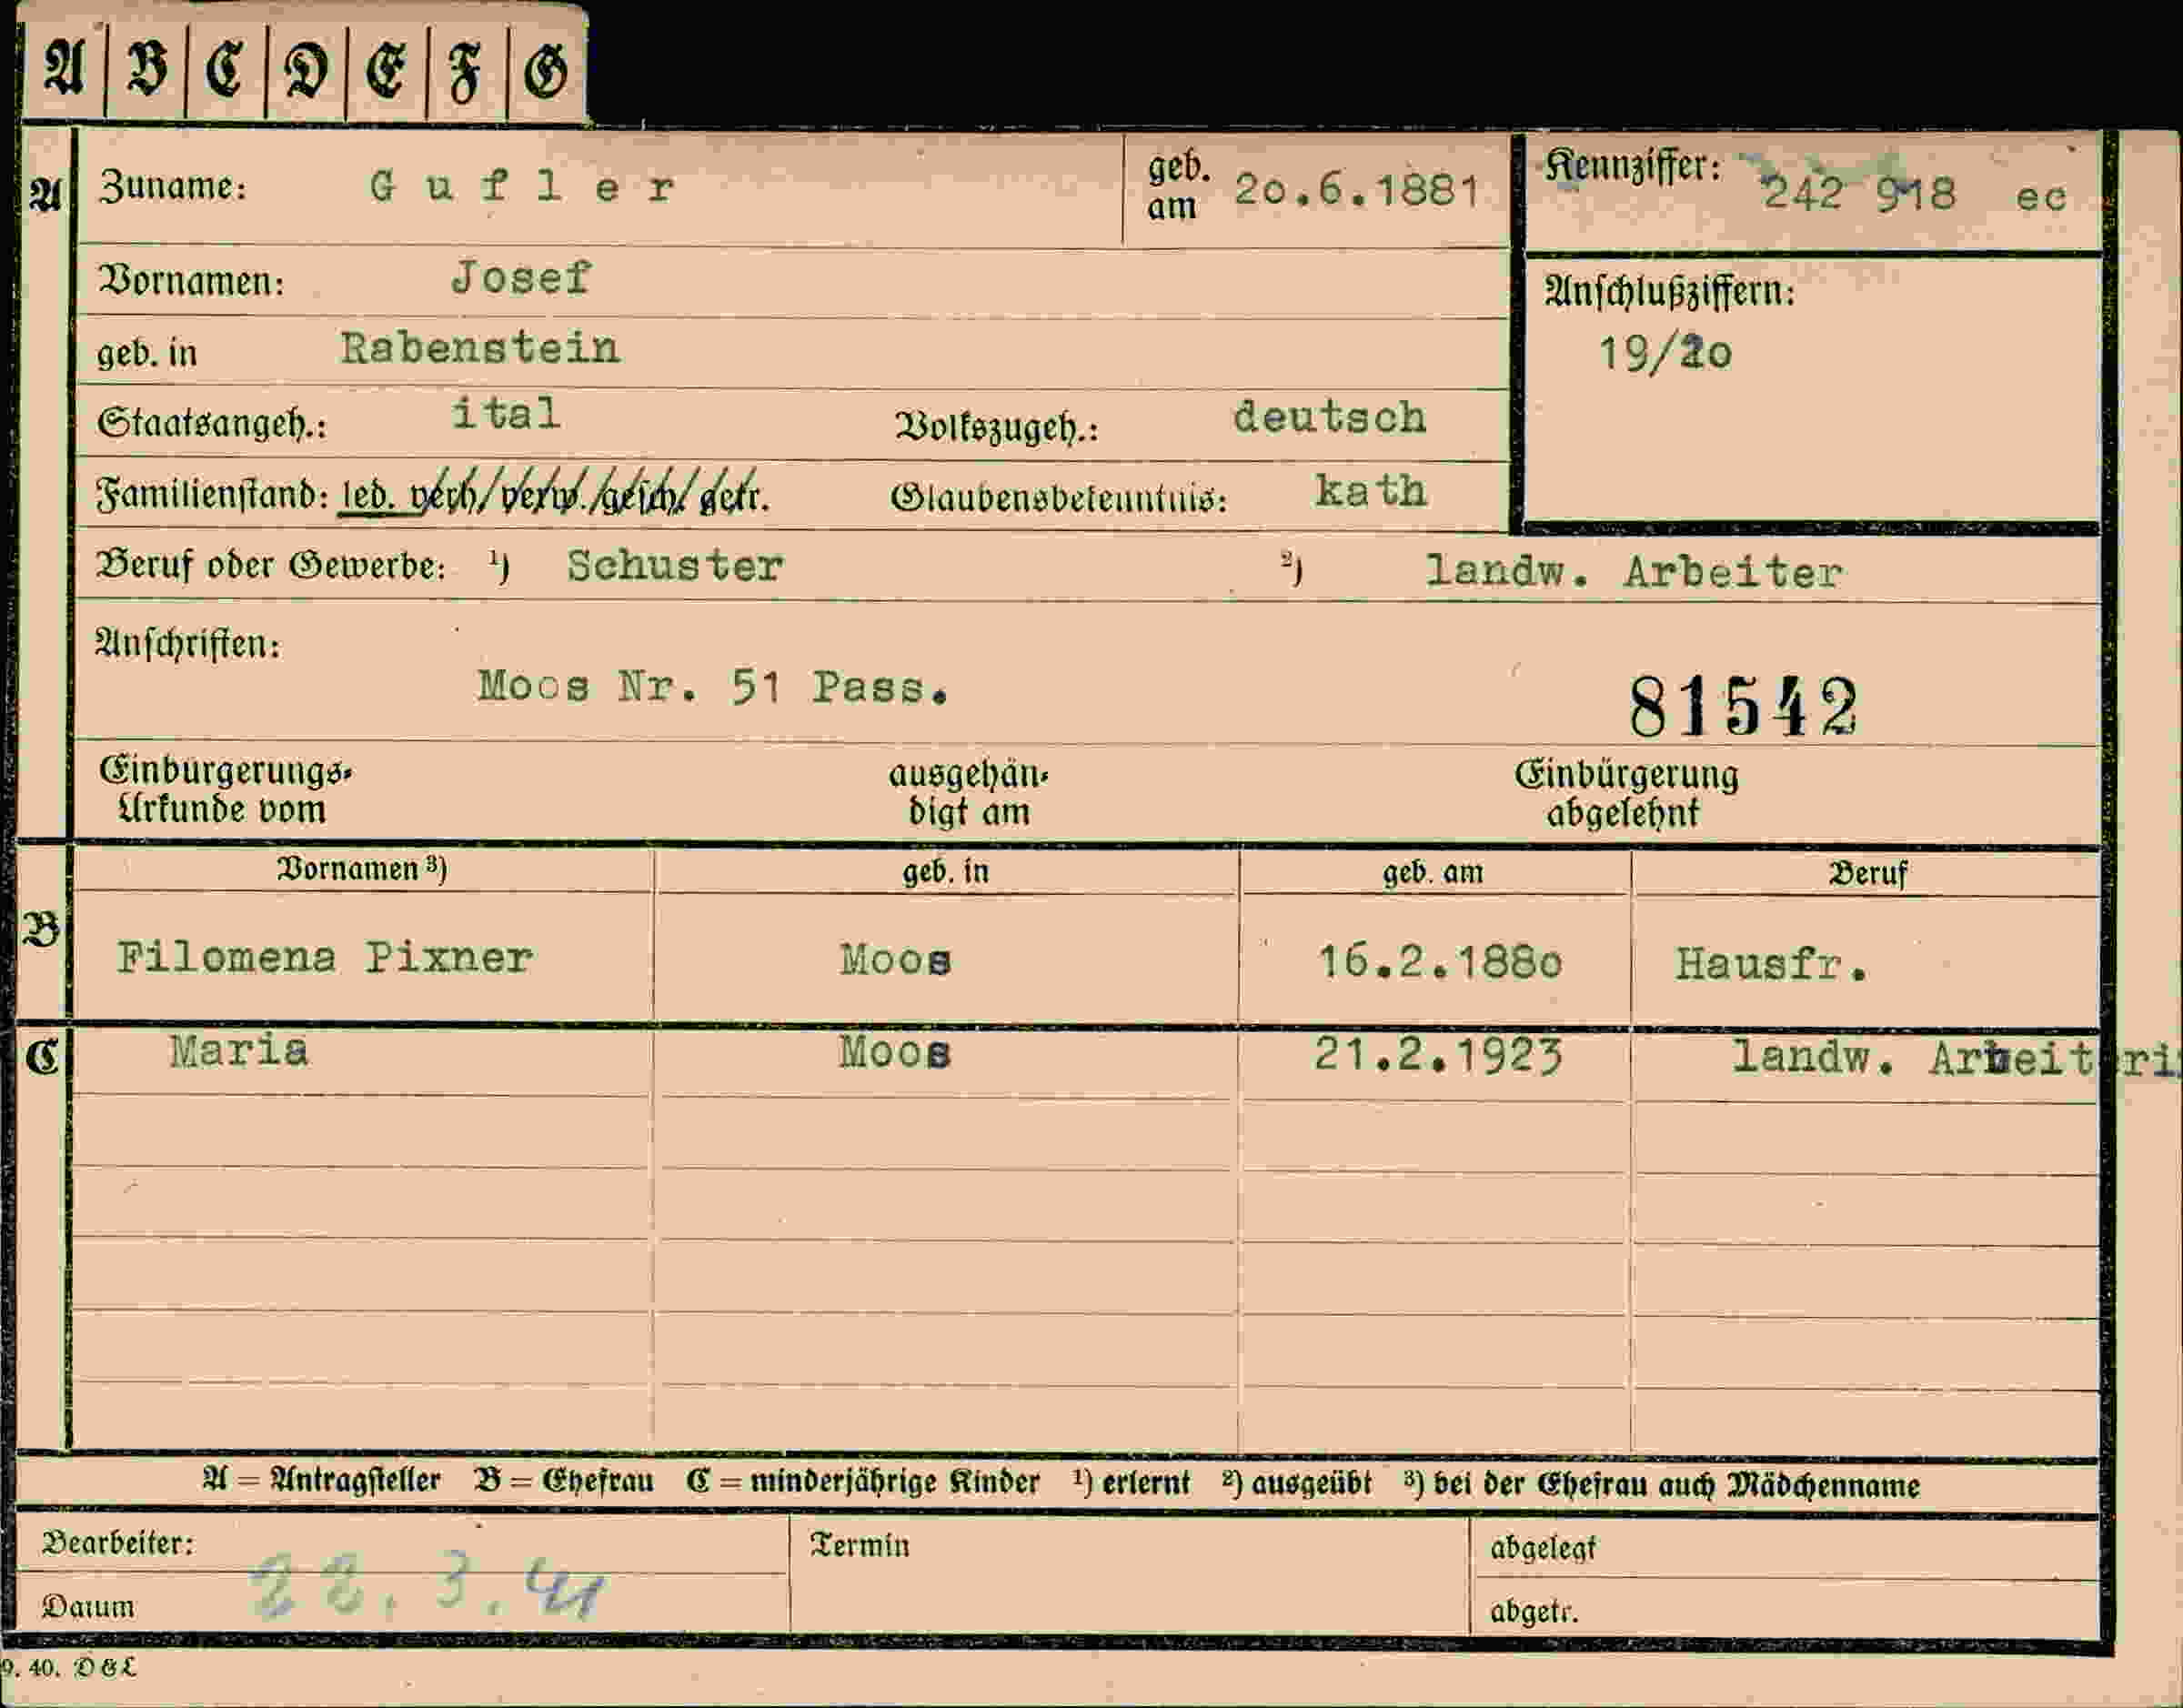 A B C D E F G
A Zuname: Gufler geb. am 20.6.1881 Kennziffer: 242 918 ec
Vornamen: Josef
Anschlußziffern:
geb. in Rabenstein
19/20
Staatsangeh.: ital Volkszugeh.: deutsch
Familienstand: led. verh/verw./gesch/getr. Glaubensbekenntnis: kath
Beruf oder Gewerbe: ¹) Schuster ²) landw. Arbeiter
Anschriften:
Moos Nr. 51 Pass. 81542
Einbürgerungs- ausgehän- Einbürgerung
Urkunde vom digt am abgelehnt
Vornamen ³) geb. in geb. am Beruf
B Filomena Pixner Moos 16.2.1880 Hausfr.
C Maria Moos 21.2.1923 landw. Arbeiteri
A = Antragsteller B = Ehefrau C = minderjährige Kinder ¹) erlernt ²) ausgeübt ³) bei der Ehefrau auch Mädchenname
Bearbeiter: Termin abgelegt
Datum 22.3.41 abgetr.
9. 40. D & L